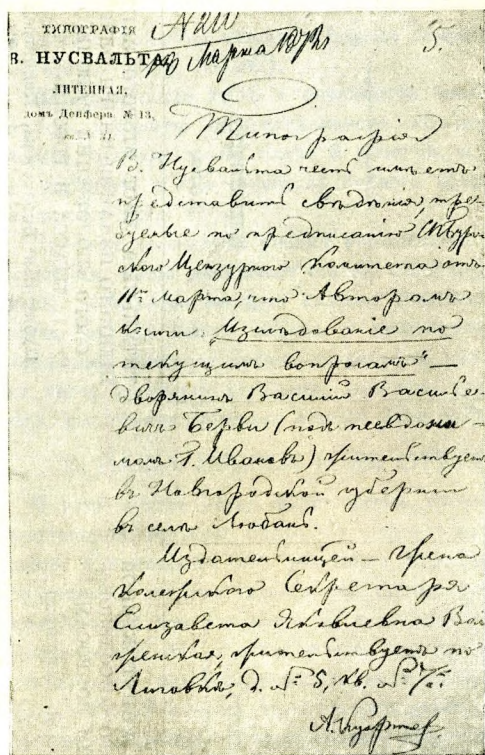 ТИПОГРАФІЯ
В. НУСВАЛЬТА
ЛИТЕЙНАЯ,
домъ Денфера № 13,
Марта
5.
Типографія
В. Нусвальта честь имѣетъ
представить свѣдѣнія, тре-
буемыя по предписанію СПБург-
скаго Цензурнаго Комитета отъ
11го Марта что Авторомъ
книги „Изслѣдованіе по
текущимъ вопросамъ" —
дворянинъ Василій Василье-
вичъ Берви (подъ псевдони-
момъ Ивановъ) жительствуетъ
въ Новгородской губерніи
въ селѣ Любань.
Издательницей — жена
Колежскаго Секретаря
Елизавета Яковлевна
жительствуетъ по
Лиговкѣ, д. № 5, кв. № 7